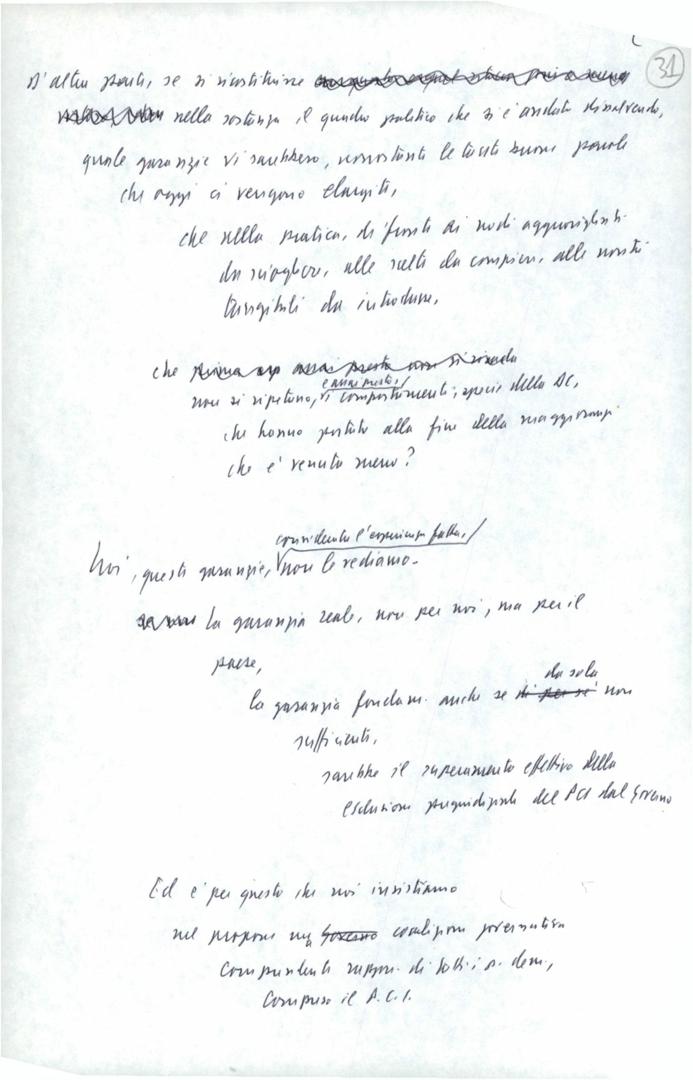 31
D'altra parte, se si ricostituisse
nella sostanza il quadro politico che si è andato dissolvendo,
quale garanzie vi sarebbero, nonostante le tante buone parole
che oggi ci vengono elargite,
che nella pratica, di fronte ai nodi aggrovigliati
da sciogliere, alle scelte da compiere, alle novità
tangibili da introdurre,
che
non si ripetano, e assai presto, i comportamenti, specie della DC,
che hanno portato alla fine della maggioranza
che è venuta meno?
considerata l'esperienza fatta,
Noi, queste garanzie, non le vediamo.
La garanzia reale, non per noi, ma per il
paese,
da sola
la garanzia fondam. anche se di per sé non
sufficiente,
sarebbe il superamento effettivo della
esclusione pregiudiziale del PCI dal Governo
Ed è per questo che noi insistiamo
nel proporre una Governo coalizione governativa
comprendente rappr. di tutti i p. dem.,
compreso il P.C.I.